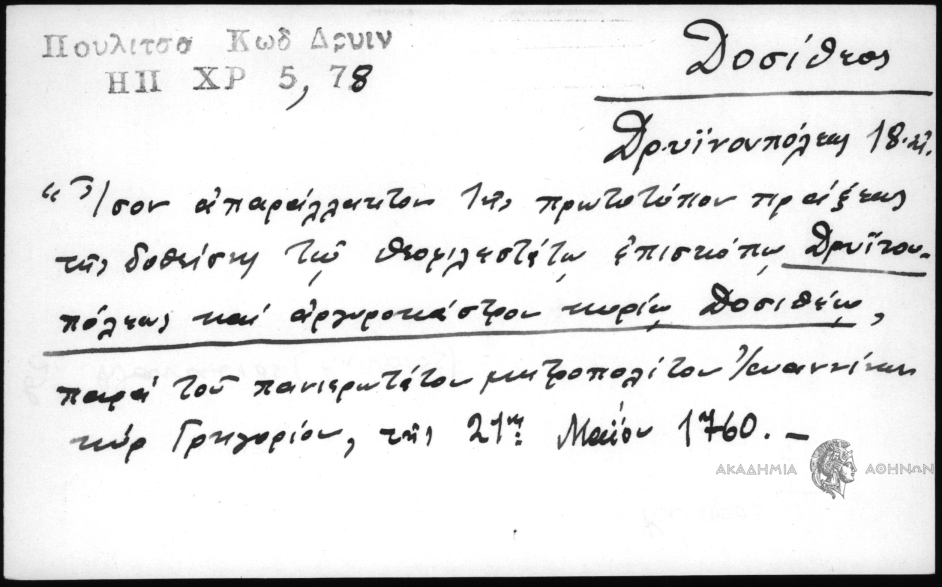 Πουλιτσα Κωδ Δρυιν
ΗΠ ΧΡ 5, 78
Δοσίθεος
Δρυϊνουπόλεως 18 αἰ.
“Ἴσον ἀπαράλλακτον τῆς πρωτοτύπου πράξεως
τῆς δοθείσης τῷ θεοφιλεστάτῳ ἐπισκόπῳ Δρυϊνου-
πόλεως καί ἀργυροκάστρου κυρίῳ Δοσιθέῳ,
παρά τοῦ πανιερωτάτου μητροπολίτου Ἰωαννίνων
κύρ Γρηγορίου, τῆς 21ης Μαΐου 1760. –
ΑΚΑΔΗΜΙΑ ΑΘΗΝΩΝ